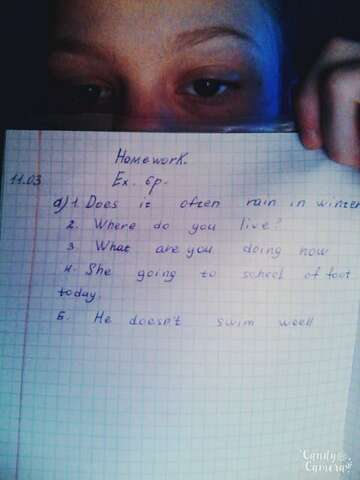 Homework.
11.03 Ex. 6p.
a) 1. Does it often rain in winter
2. Where do you live?
3 What are you doing now
4. She going to school of foot
today.
5. He doesn't swim weell
Candy
Camera